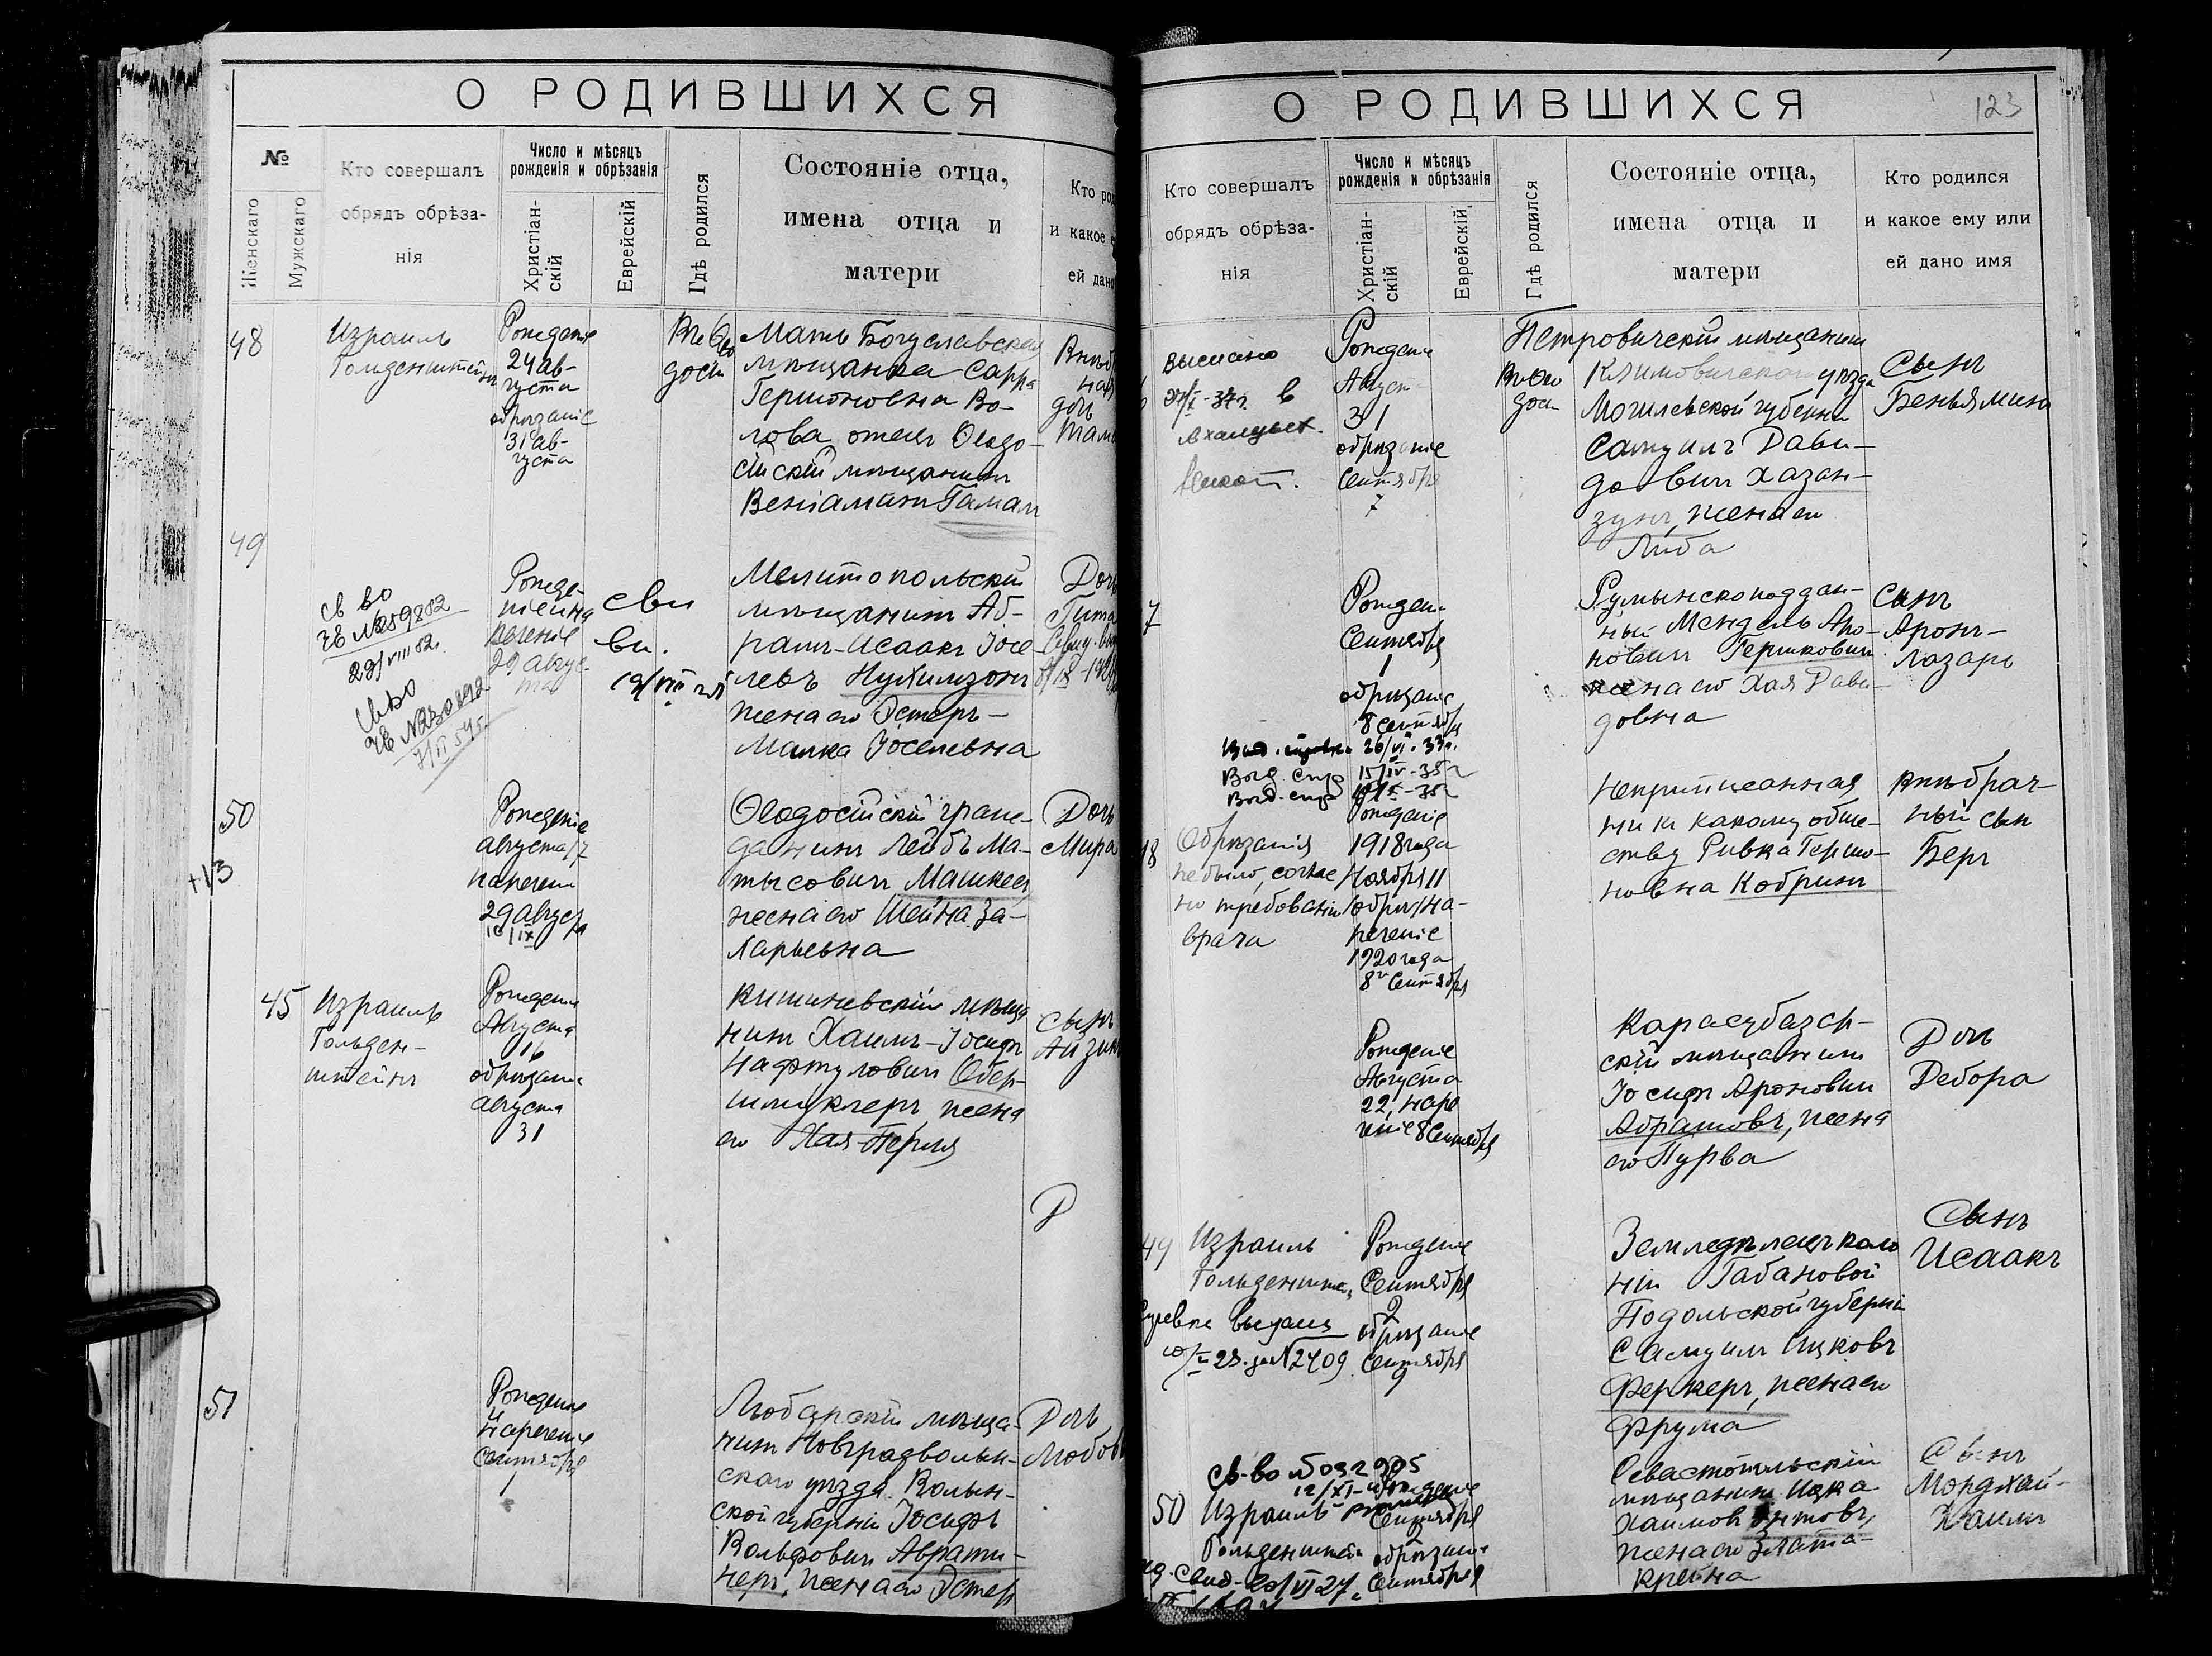 О РОДИВШИХСЯ
№
Женскаго
Мужскаго
Кто совершалъ
обрядъ обрѣза-
нія
Число и мѣсяцъ
рожденія и обрѣзанія
Христіан-
скій
Еврейскій
Гдѣ родился
Состояніе отца,
имена отца и
матери
Кто
и какое
ей дано
48
Израиль
Гольденштейн
Рожденіе
24 ав-
густа
обрѣзаніе
31 ав-
густа
Мать Богуславская
мѣщанка Сарра
Гершоновна Во-
лова отецъ Ѳеодо-
сійскій мѣщанинъ
Веніаминъ Таман
49
св во
29/VIII 52.
Рожде-
ніе и на
реченіе
29 авгус-
та
Мелитопольскій
мѣщанинъ Аб-
рамъ-Исаакъ Іосе-
левъ Нухимзонъ
жена его Эстеръ-
Малка Іоселевна
Дочь
Гита
50
+13
Рожденіе
августа 17
нареченіе
29 августа
Ѳеодосійскій граж-
данинъ Лейбъ Ма-
тысовичъ Машкец
жена его Шейна За-
харьевна
Дочь
Мира
45
Израиль
Гольден-
штейнъ
Рожденіе
Августа
16
обрѣзаніе
августа
31
Кишиневскій мѣща
нинъ Хаимъ-Іосифъ
Нафтуловичъ Обер-
шмуклеръ, жена
его Хая-Перля
сынъ
Айзикъ
51
Рожденіе
и
Нареченіе
Сентября
1
Любарскій мѣща-
нинъ Новградволын-
скаго уѣзда Волын-
ской губерніи Іосифъ
Вольфовичъ Аврати-
неръ, жена его Эстеръ
Дочь
Любовь
О РОДИВШИХСЯ
123
Кто совершалъ
обрядъ обрѣза-
нія
Число и мѣсяцъ
рожденія и обрѣзанія
Христіан-
скій
Еврейскій
Гдѣ родился
Состояніе отца,
имена отца и
матери
Кто родился
и какое ему или
ей дано имя
выслано
Рожденіе
Августа
31
обрѣзаніе
Сентября
7
Петровичскій мѣщанинъ
Климовичскаго уѣзда
Могилевской губерніи
Самуилъ Дави-
довичъ Хазан-
зунъ, жена его
Либа
Сынъ
Беньяминъ
7
Рожден.
Сентября
1
обрѣзаніе
8 сентября
20/VI-33г.
15/IV-35г
Румынскоподдан-
ный Мендель Аро-
новичъ Гершковичъ
жена его Хая Дави-
довна
Сынъ
Аронъ-
Лазарь
Обрѣзанія
не было, соглас
но требованію
врача
Рожденіе
1918 года
Ноября 11
обрѣз/на-
реченіе
1920 года
8 Сентября
Неприписанная
ни къ какому обще-
ству Ривка Гершо-
новна Кобринъ
внѣбрач-
ный сын
Беръ
Рожденіе
Августа
22, наре
ченіе 8 Сентября
Карасубазар-
скій мѣщанинъ
Іосифъ Ароновичъ
Абрамовъ, жена
его Пурва
Дочь
Дебора
49
Израиль
Гольденштейн
Рожденіе
Сентября
2
обрѣзаніе
Сентября
9
Справка выдана
28. за № 2409
Земледѣлецъ коло
ніи Габановой
Подольской губерніи
Самуилъ Ицковъ
Феркеръ, жена его
Фрума
Сынъ
Исаакъ
50
Св-во № 032905
12/XI
Израиль
Гольденштейн
Рожденіе
Сентября
обрѣзаніе
Сентября
Севастопольскій
мѣщанинъ Ицка
Хаимов
жена его Злата-
Крейна
Сынъ
Мордхай-
Хаимъ